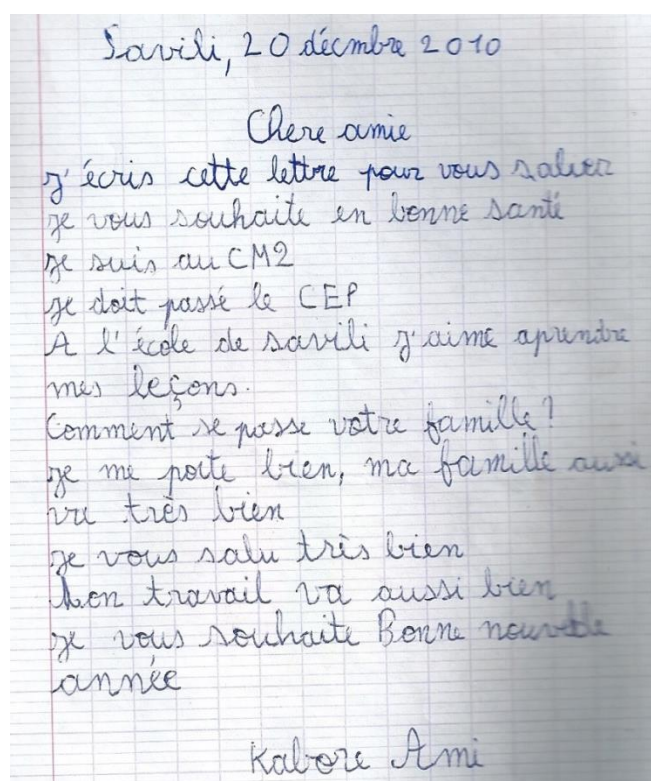 Savili, 20 décmbre 2010
Chere amie
j'écris cette lettre pour vous saluer
je vous souhaite en bonne santé
je suis au CM2
je doit passé le CEP
A l'école de savili j'aime aprendre
mes leçons.
Comment se passe votre famille?
je me porte bien, ma famille aussi
va très bien
je vous salu très bien
Mon travail va aussi bien
je vous souhaite Bonne nouvelle
année
Kabore Ami